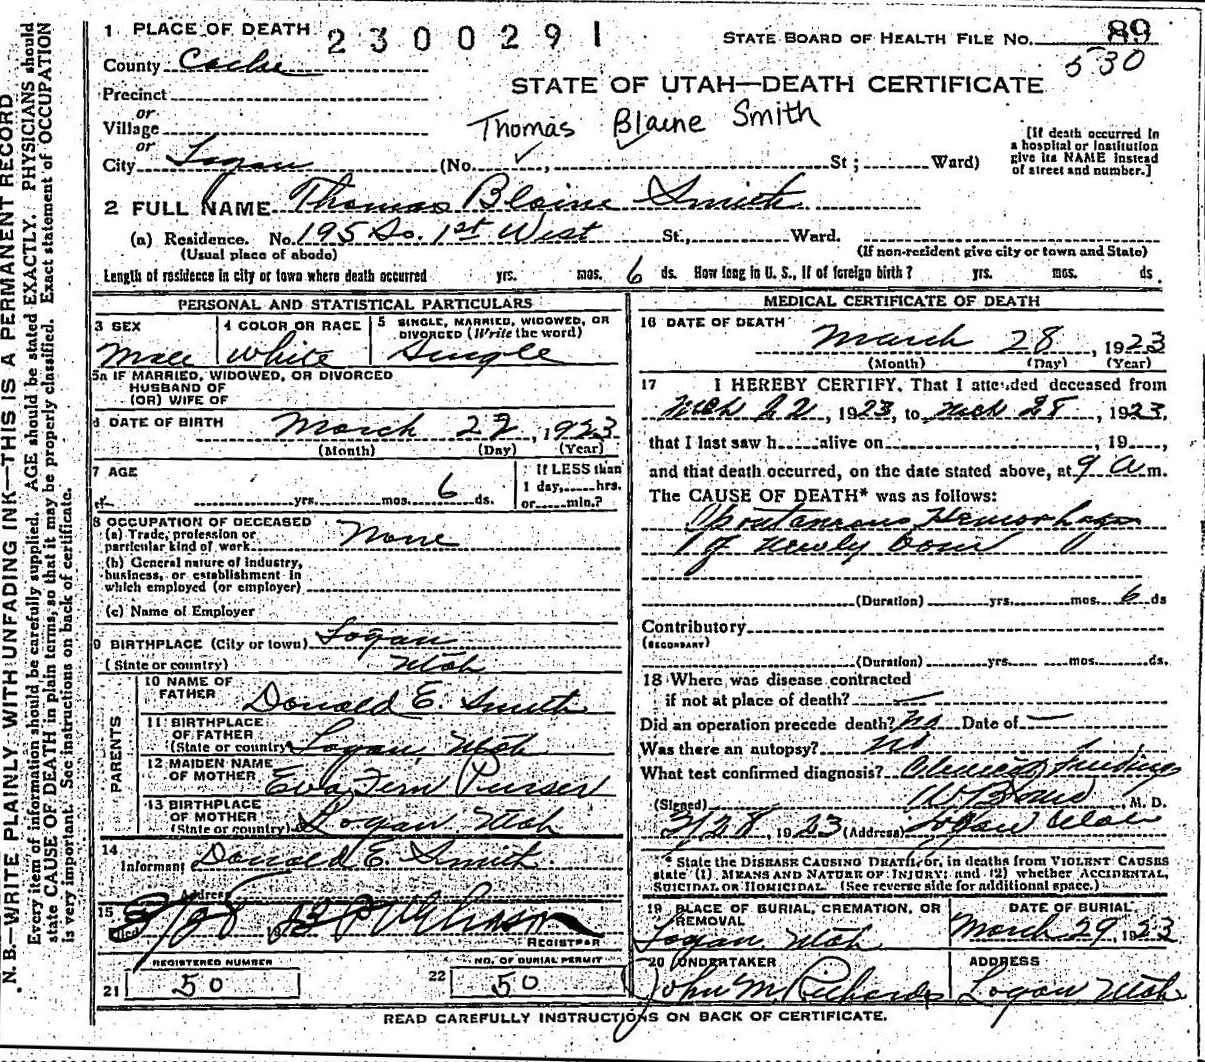 N. B.—WRITE PLAINLY WITH UNFADING INK—THIS IS A PERMANENT RECORD
Every item of information should be carefully supplied. AGE should be stated EXACTLY. PHYSICIANS should
state CAUSE OF DEATH in plain terms, so that it may be properly classified. Exact statement of OCCUPATION
is very important. See instructions on back of certificate.
1 PLACE OF DEATH 2300291
STATE BOARD OF HEALTH FILE No. 89
530
County Cache
STATE OF UTAH—DEATH CERTIFICATE
Precinct
or
Village
Thomas Blaine Smith
or
City Logan (No. St; Ward)
[If death occurred in
a hospital or institution
give its NAME instead
of street and number.]
2 FULL NAME Thomas Blaine Smith
(a) Residence. No. 195 So. 1st West St., Ward.
(Usual place of abode) (If non-resident give city or town and State)
Length of residence in city or town where death occurred yrs. mos. 6 ds. How long in U. S., if of foreign birth? yrs. mos. ds
PERSONAL AND STATISTICAL PARTICULARS
3 SEX Male
4 COLOR OR RACE White
5 SINGLE, MARRIED, WIDOWED, OR
DIVORCED (Write the word)
Single
5a IF MARRIED, WIDOWED, OR DIVORCED
HUSBAND OF
(OR) WIFE OF
6 DATE OF BIRTH March 22, 1923
(Month) (Day) (Year)
7 AGE yrs. mos. 6 ds.
If LESS than
1 day, hrs.
or min.?
8 OCCUPATION OF DECEASED
(a) Trade, profession or
particular kind of work None
(b) General nature of industry,
business, or establishment in
which employed (or employer)
(c) Name of Employer
9 BIRTHPLACE (City or town) Logan
(State or country) Utah
PARENTS
10 NAME OF
FATHER Donald E. Smith
11 BIRTHPLACE
OF FATHER
(State or country) Logan, Utah
12 MAIDEN NAME
OF MOTHER Eva Fern Purser
13 BIRTHPLACE
OF MOTHER
(State or country) Logan Utah
14
Informant Donald E. Smith
Address
15
Filed 3/28 1923
REGISTRAR
REGISTERED NUMBER
21 50
NO. OF BURIAL PERMIT
22 50
MEDICAL CERTIFICATE OF DEATH
16 DATE OF DEATH
March 28, 1923
(Month) (Day) (Year)
17 I HEREBY CERTIFY, That I attended deceased from
Mch 22, 1923, to Mch 28, 1923,
that I last saw h alive on , 19 ,
and that death occurred, on the date stated above, at 9 a m.
The CAUSE OF DEATH* was as follows:
Spontaneous Hemorhage
of newly born
(Duration) yrs. mos. 6 ds
Contributory
(SECONDARY)
(Duration) yrs. mos. ds.
18 Where was disease contracted
if not at place of death? —
Did an operation precede death? No Date of —
Was there an autopsy? No
What test confirmed diagnosis? Clinical findings
(Signed) M. D.
3/28, 1923 (Address) Logan Utah
* State the DISEASE CAUSING DEATH, or, in deaths from VIOLENT CAUSES
state (1) MEANS AND NATURE OF INJURY; and (2) whether ACCIDENTAL,
SUICIDAL OR HOMICIDAL. (See reverse side for additional space.)
19 PLACE OF BURIAL, CREMATION, OR
REMOVAL
Logan, Utah
DATE OF BURIAL
March 29, 1923
20 UNDERTAKER
John M. Richards
ADDRESS
Logan Utah
READ CAREFULLY INSTRUCTIONS ON BACK OF CERTIFICATE.